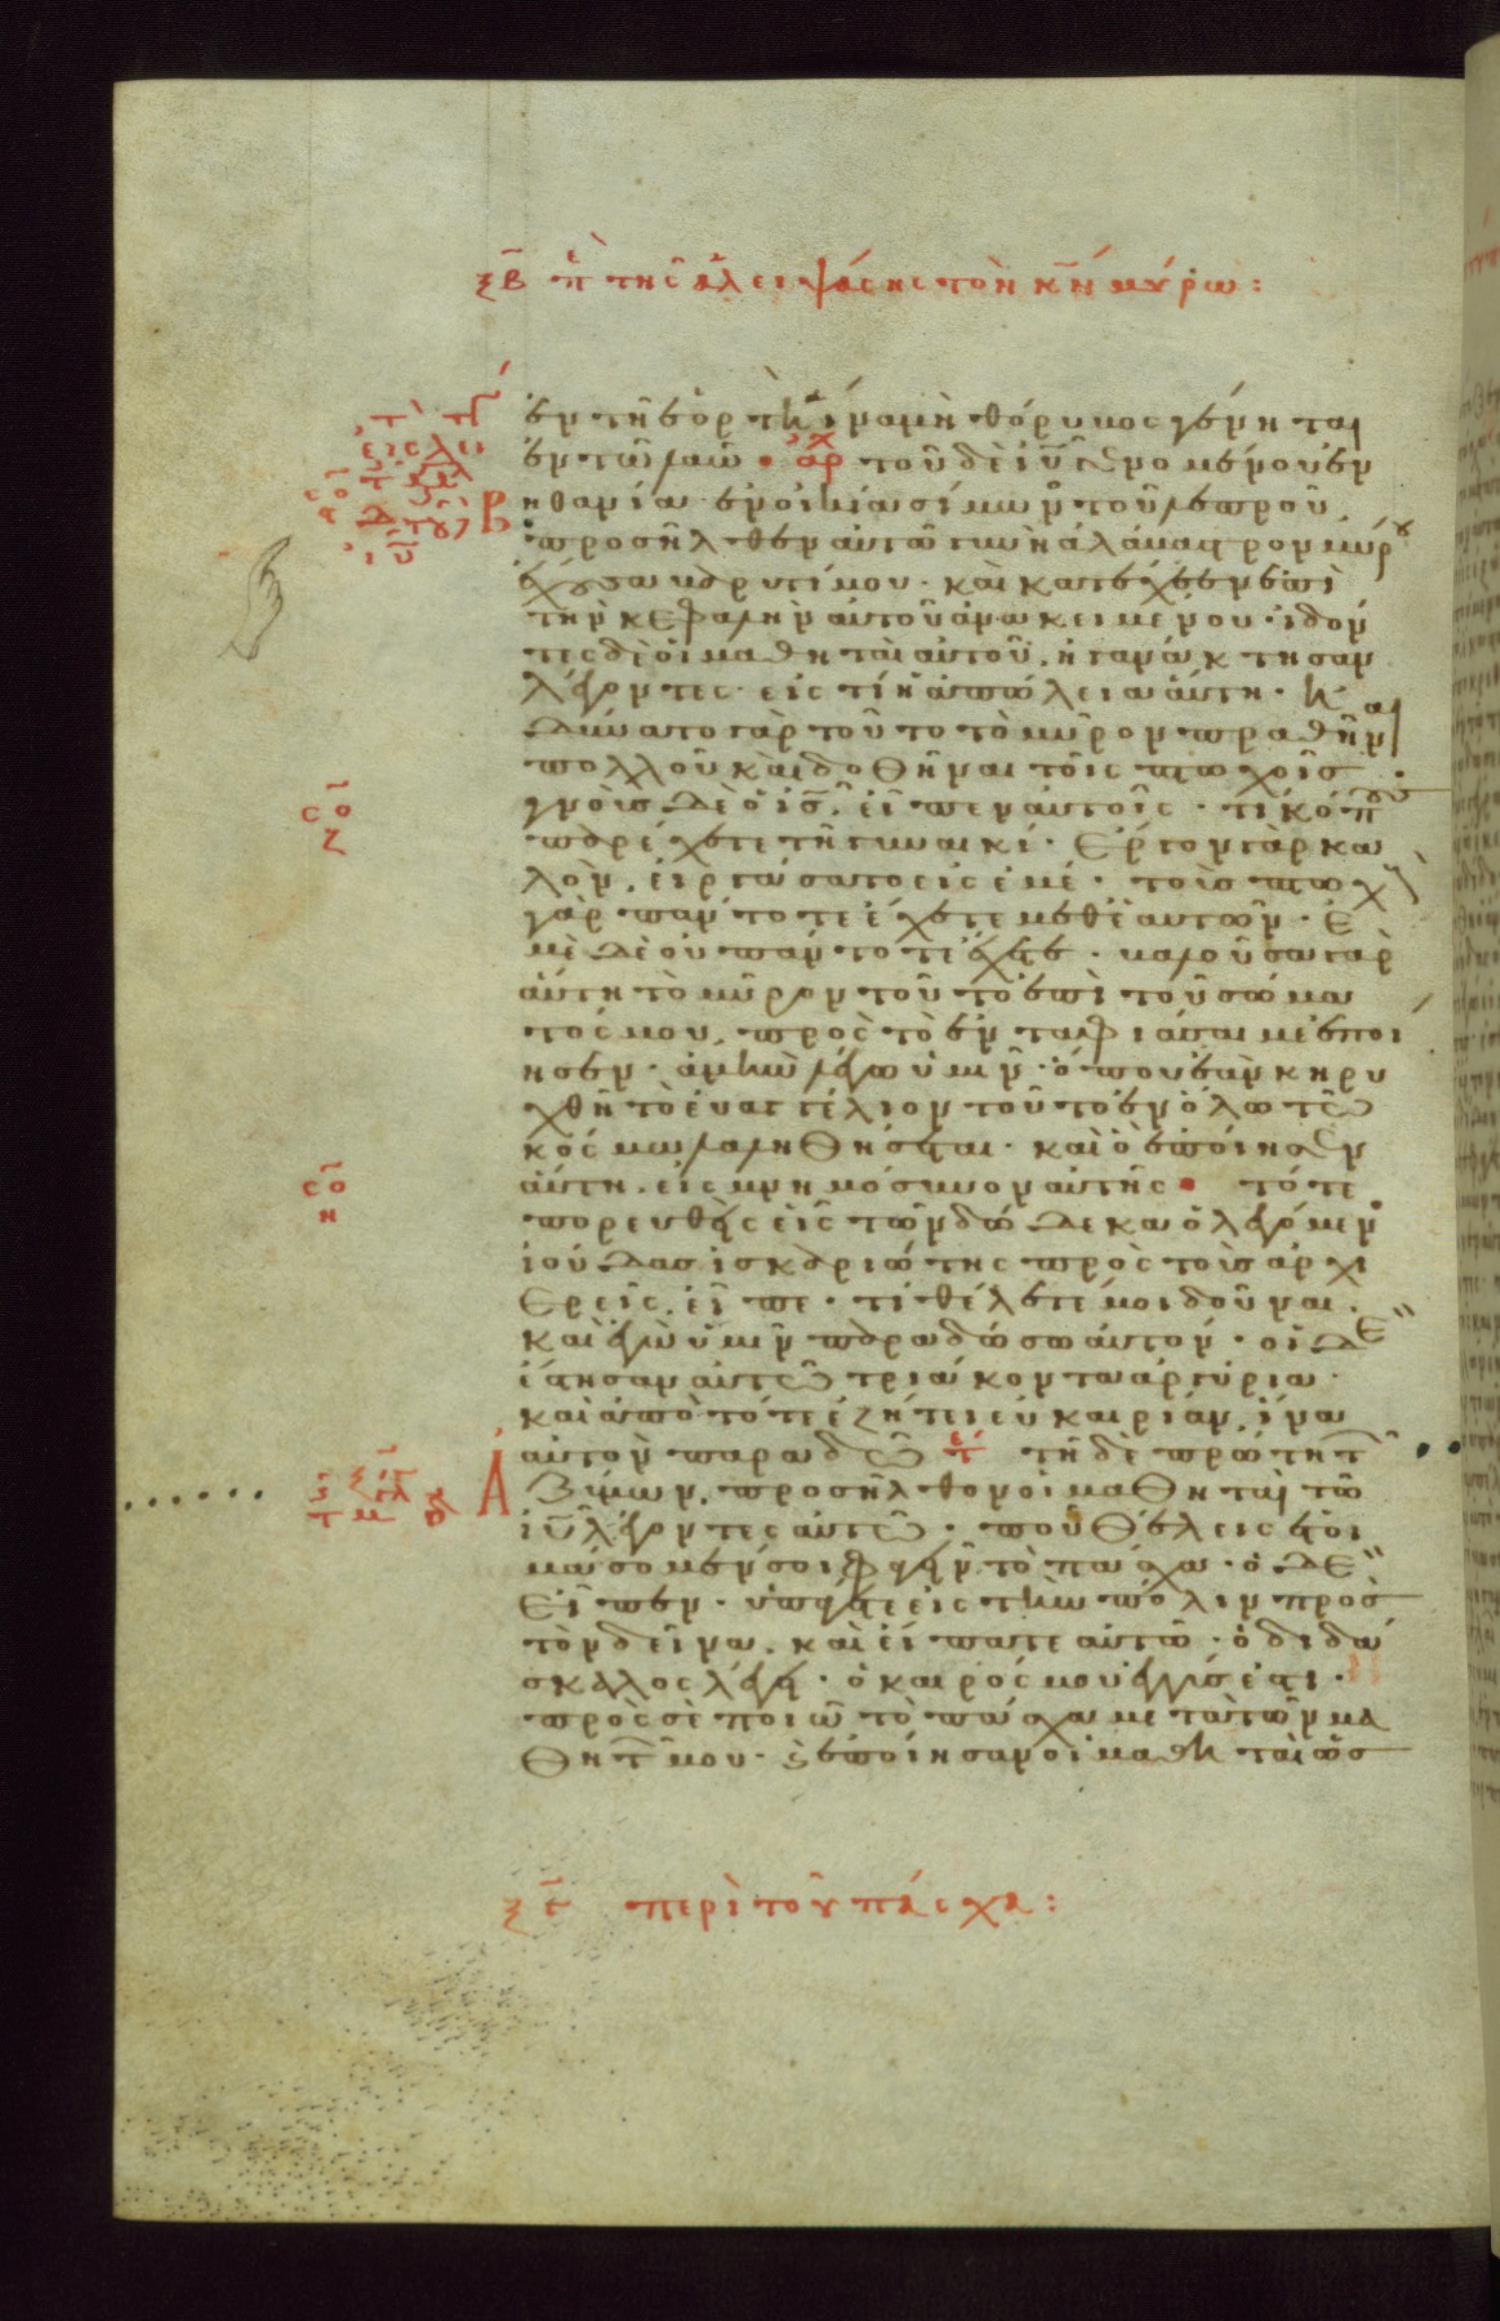 ξβ π της αλειψάσης τὸν κν μύρω:
ἐν τῆ ἑορτῆ ἵνα μὴ θόρυβος γένηται
ἐν τῶ λαῶ · ἀρχ τοῦ δὲ ἰυ γενομένου ἐν
βηθανία ἐν οἰκία σίμωνος τοῦ λεπροῦ
προσῆλθεν αὐτῶ γυνὴ ἀλάβαστρον μύρου
ἔχουσα βαρυτίμου · καὶ κατέχεεν ἐπὶ
τὴν κεφαλὴν αὐτοῦ ἀνακειμένου · ἰδόν
τες δὲ οἱ μαθηταὶ αὐτοῦ, ἠγανάκτησαν
λέγοντες · εἰς τί ἡ ἀπώλεια αὕτη ·
ἠδύνατο γὰρ τοῦτο τὸ μῦρον πραθῆναι
πολλοῦ καὶ δοθῆναι τοῖς πτωχοῖς ·
γνοὺς δὲ ὁ ις, εἶπεν αὐτοῖς · τί κόπους
παρέχετε τῆ γυναικί · ἔργον γὰρ κα
λὸν, εἰργάσατο εἰς ἐμέ · τοὺς πτωχοὺς
γὰρ πάντοτε ἔχετε μεθ' ἑαυτῶν · ἐ
μὲ δὲ οὐ πάντοτε ἔχετε · βαλοῦσα γὰρ
αὕτη τὸ μῦρον τοῦτο ἐπὶ τοῦ σώμα
τός μου, πρὸς τὸ ἐνταφιάσαι με ἐποί
ησεν · ἀμὴν λέγω ὑμῖν · ὅπου ἐὰν κηρυ
χθῆ τὸ εὐαγγέλιον τοῦτο ἐν ὅλω τῶ
κόσμω λαληθήσεται · καὶ ὃ ἐποίησεν
αὕτη, εἰς μνημόσυνον αὐτῆς · τότε
πορευθεὶς εἷς τῶν δώδεκα ὁ λεγόμεν
ἰούδας ἰσκαριώτης πρὸς τοὺς ἀρχι
ερεῖς, εἶπε · τί θέλετέ μοι δοῦναι ·
καὶ ἐγὼ ὑμῖν παραδώσω αὐτόν · οἱ δὲ
ἔστησαν αὐτῶ τριάκοντα ἀργύρια ·
καὶ ἀπὸ τότε ἐζήτει εὐκαιρίαν, ἵνα
αὐτὸν παραδῶ τε τῆ δὲ πρώτη τ
ἀζύμων, προσῆλθον οἱ μαθηταὶ τῶ
ἰυ λέγοντες αὐτῶ · ποῦ θέλεις ἑτοι
μάσομέν σοι φαγεῖν τὸ πάσχα · ὁ δὲ
εἶπεν · ὑπάγετε εἰς τὴν πόλιν πρὸς
τὸν δεῖνα, καὶ εἴπατε αὐτῶ · ὁ διδά
σκαλος λέγει · ὁ καιρός μου ἐγγύς ἐστι ·
πρὸς σὲ ποιῶ τὸ πάσχα μετὰ τῶν μα
θητ μου · ϗ ἐποίησαν οἱ μαθηταὶ ὡς
σο
ζ
σο
η
ξγ περὶ τοῦ πάσχα: